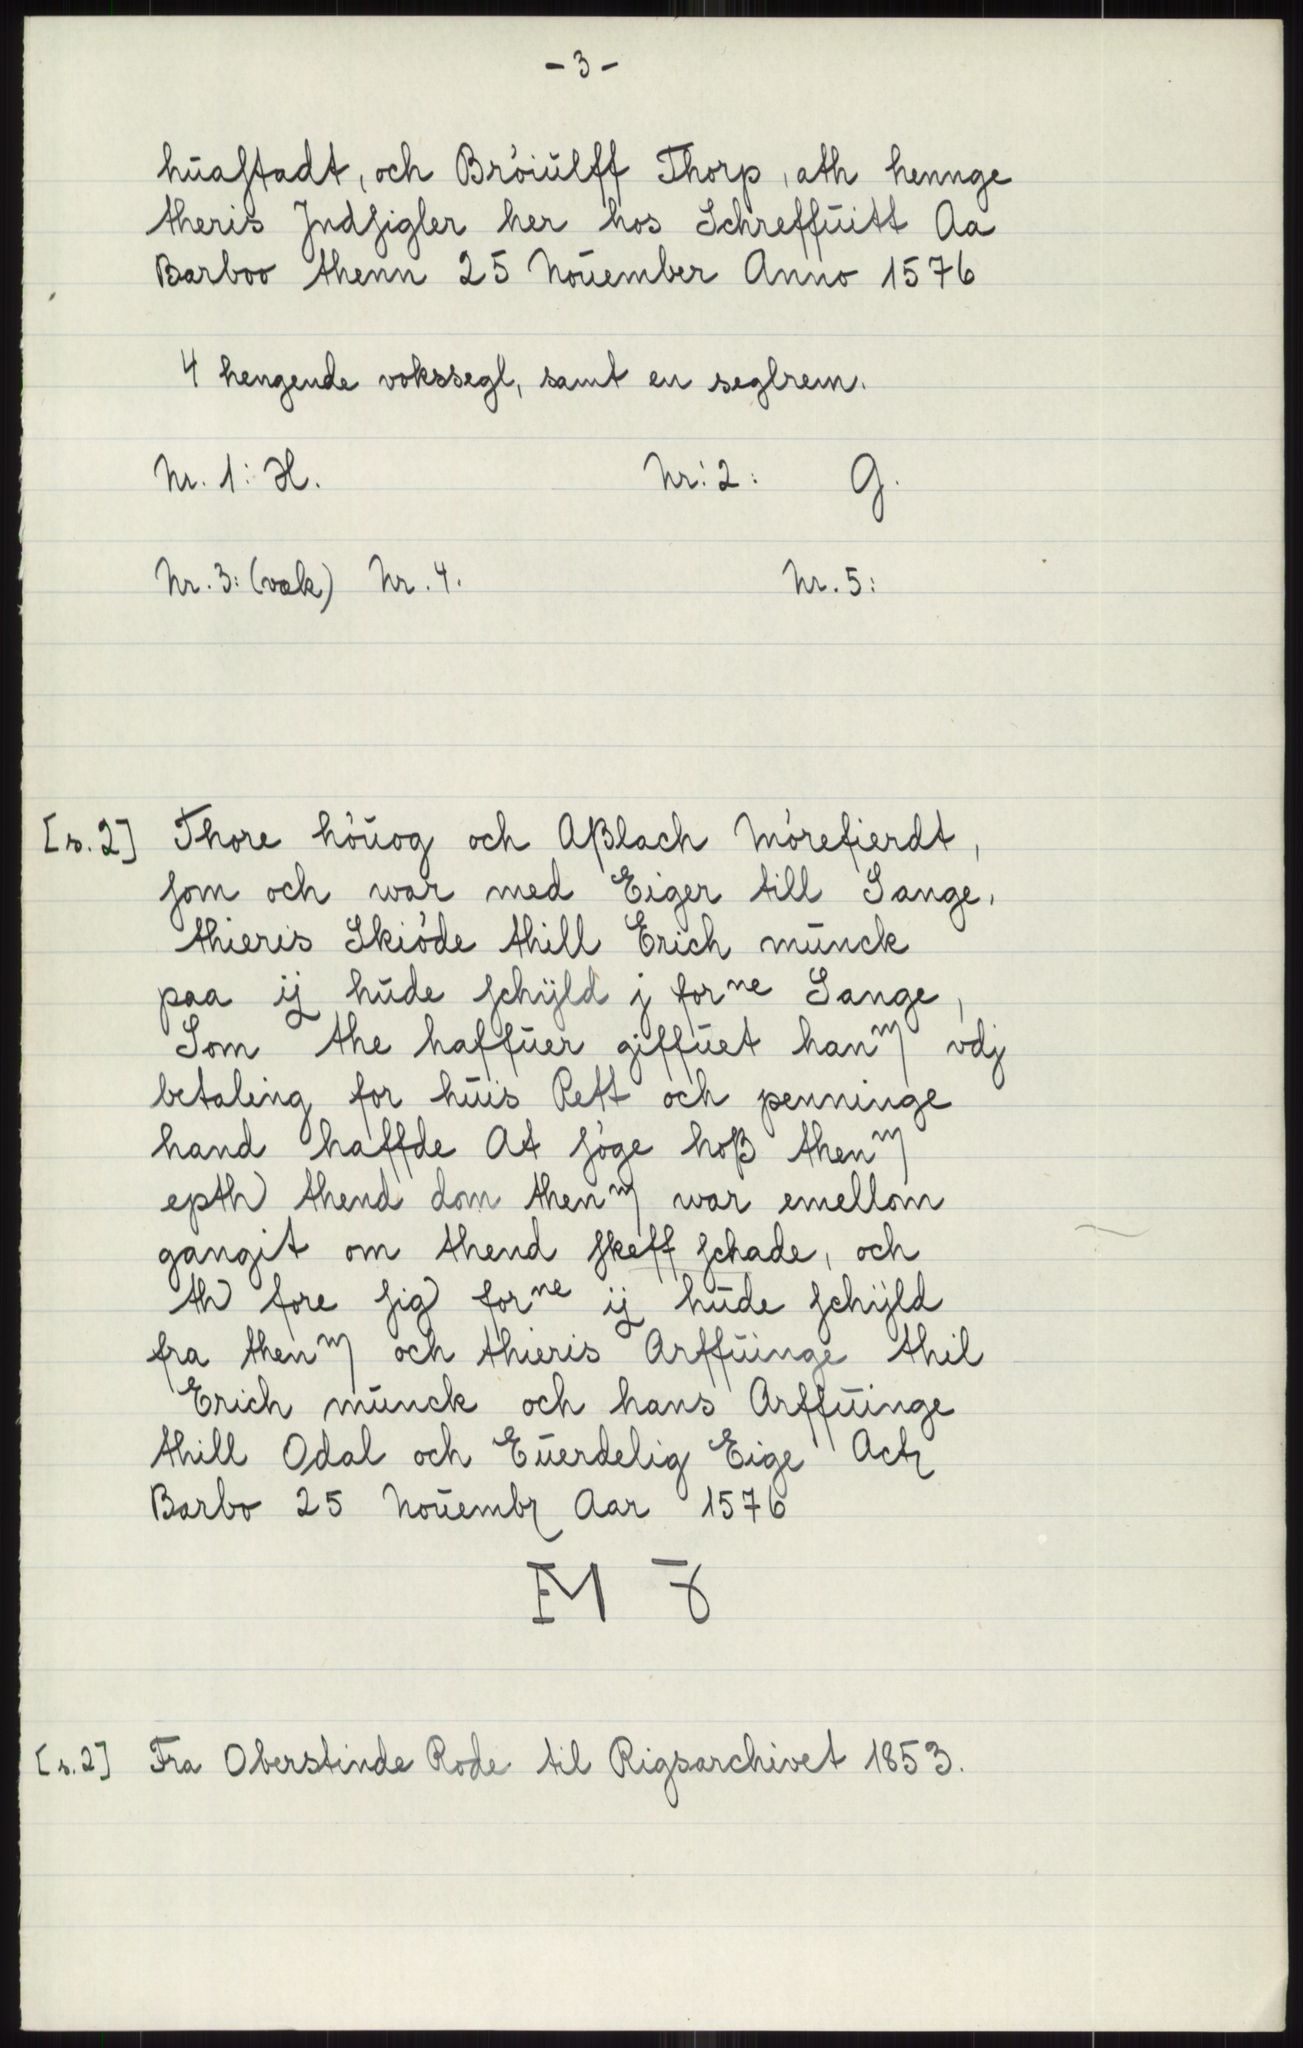 - 3 -
huaſtadt, och Bróiulff Thorp, ath hennge
theris Jndſigler her hos Schreffuitt Aa
Barboo thenn 25 Nouember Anno 1576
4 hengende vokssegl, samt en seglrem.
Nr. 1: H. Nr. 2: G.
Nr. 3: (væk) Nr. 4. Nr. 5:
[s. 2] Thore hóuog och Aßlach Mórefierdt,
ſom och war med Eiger till Sange,
thieris Skióde thill Erich munck
paa ij hude ſchijld j forne Sange,
Som the haffuer giffuet hanm vdj
betaling for huis Rett och penninge
hand haffde At ſóge hoß thenm
epth thend dom thenm war emellom
gangit om thend ſkeff ſchade, och
th fore ſig forne ij hude ſchijld
fra thenm och thieris Arffuinge thil
Erich munck och hans Arffuinge
thill Odal och Euerdelig Eige Act
Barbo 25 Nouemb Aar 1576
EM 8
[s. 2] Fra Oberstinde Rode til Rigsarchivet 1853.